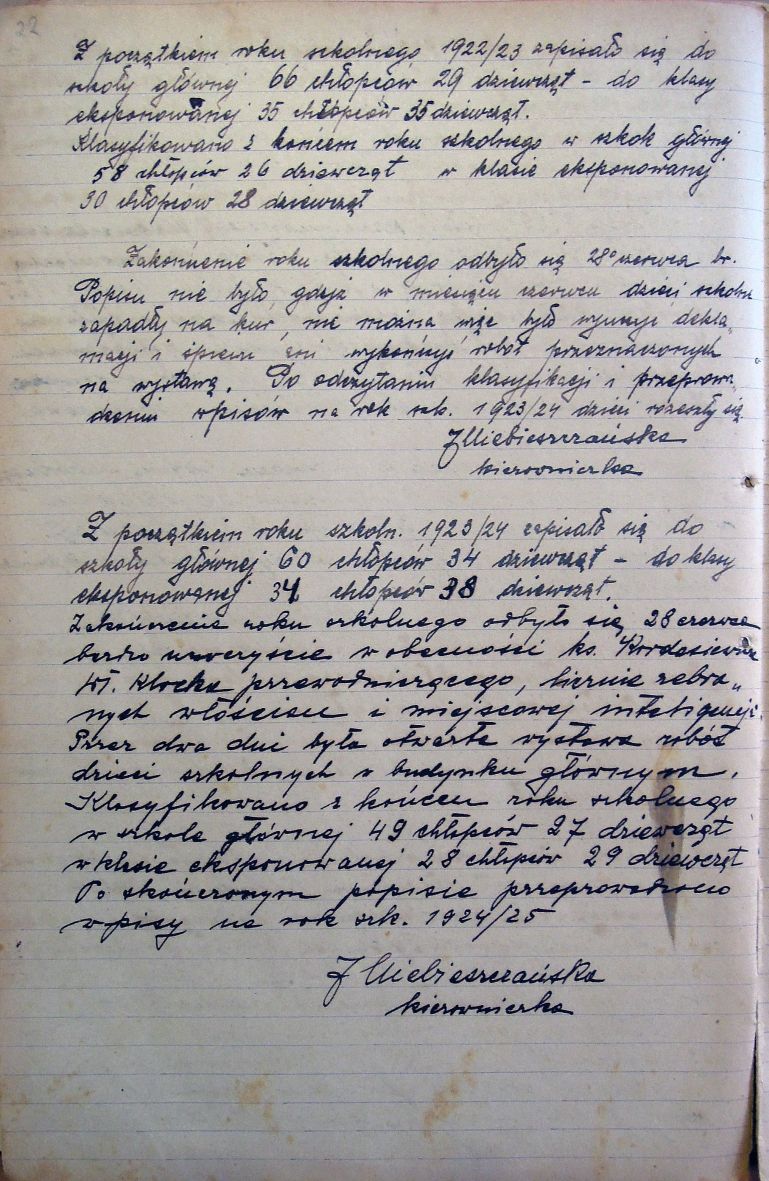 22
Z początkiem roku szkolnego 1922/23 zapisało się do
szkoły głównej 66 chłopców 29 dziewcząt – do klasy
eksponowanej 35 chłopców 35 dziewcząt.
Klasyfikowano z końcem roku szkolnego w szkole głównej
58 chłopców 26 dziewcząt w klasie eksponowanej
30 chłopców 28 dziewcząt
Zakończenie roku szkolnego odbyło się 28 czerwca br.
Popisu nie było, gdyż w miesiącu czerwcu dzieci szkolne
zapadły na kur, nie można więc było wyuczyć dekla„
macji i śpiewu ani wykończyć robót przeznaczonych
na wystawę. Po odczytaniu klasyfikacji i przeprowa„
dzeniu wpisów na rok szk. 1923/24 dzieci rozeszły się.
J Niebieszczańska
kierowniczka
Z początkiem roku szkoln. 1923/24 zapisało się do
szkoły głównej 60 chłopców 34 dziewcząt – do klasy
eksponowanej 34 chłopców 38 dziewcząt.
Zakończenie roku szkolnego odbyło się 28 czerwca
bardzo uroczyście w obecności ks. Kordasiewicza
Wł. Klocka przewodniczącego, licznie zebra„
nych włościan i miejscowej inteligencji.
Przez dwa dni była otwarta wystawa robót
dzieci szkolnych w budynku głównym.
Klasyfikowano z końcem roku szkolnego
w szkole głównej 49 chłopców 27 dziewcząt
w klasie eksponowanej 28 chłopców 29 dziewcząt
Po skończonym popisie przeprowadzono
wpisy na rok szk. 1924/25
J Niebieszczańska
kierowniczka